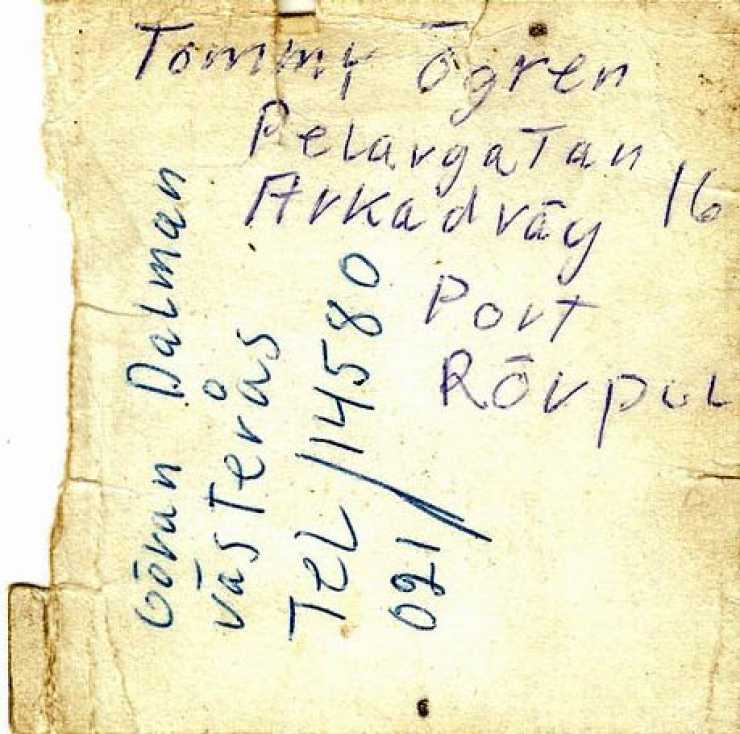 Tommy Ögren
Pelargatan
Arkadväg 16
Port
Rörpul
Göran Dalman
Västerås
TEL/14580
021/